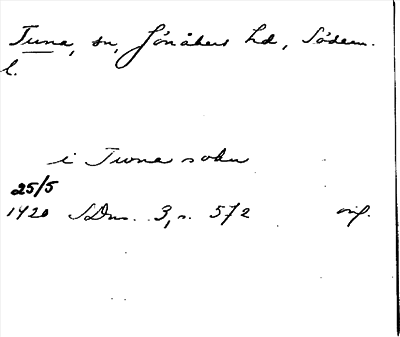 Tuna, sn, Jönåkers hd, Södem.
l.
i Twna sokn
25/5
1420 SDns. 3, s. 572 orig.